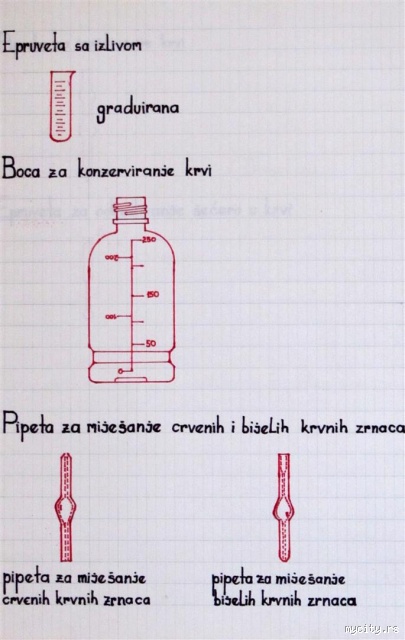 Epruveta sa izlivom
graduirana
Boca za konzerviranje krvi
250
200
150
100
50
0
Pipeta za miješanje crvenih i bijelih krvnih zrnaca
pipeta za miješanje
crvenih krvnih zrnaca
pipeta za miješanje
bijelih krvnih zrnaca
mycity.rs